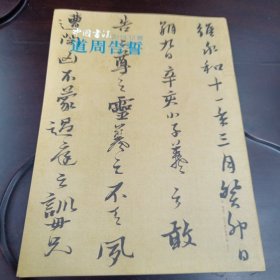 中国書法
道周告誓
維永和十一年三月癸卯日
朔九日辛亥小子羲之敢
告二尊之靈羲之不天夙
遭閔凶不蒙過庭之訓母兄